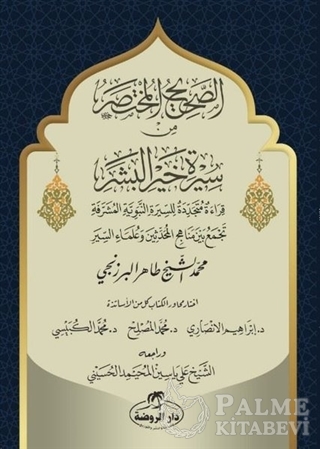 الصحيح المختصر
من
سيرة خير البشر
قراءة متجددة للسيرة النبوية المشرفة
تجمع بين مناهج المحدثين وعلماء السير
محمد الشيخ طاهر البرزنجي
اختار محاور الكتاب كل من الأساتذة
د. إبراهيم الأنصاري د. محمد المصلح د. محمد الكبيسي
وراجعه
الشيخ علي ياسين المحيمد الحسيني
دار الروضة
PALME
KİTABEVİ